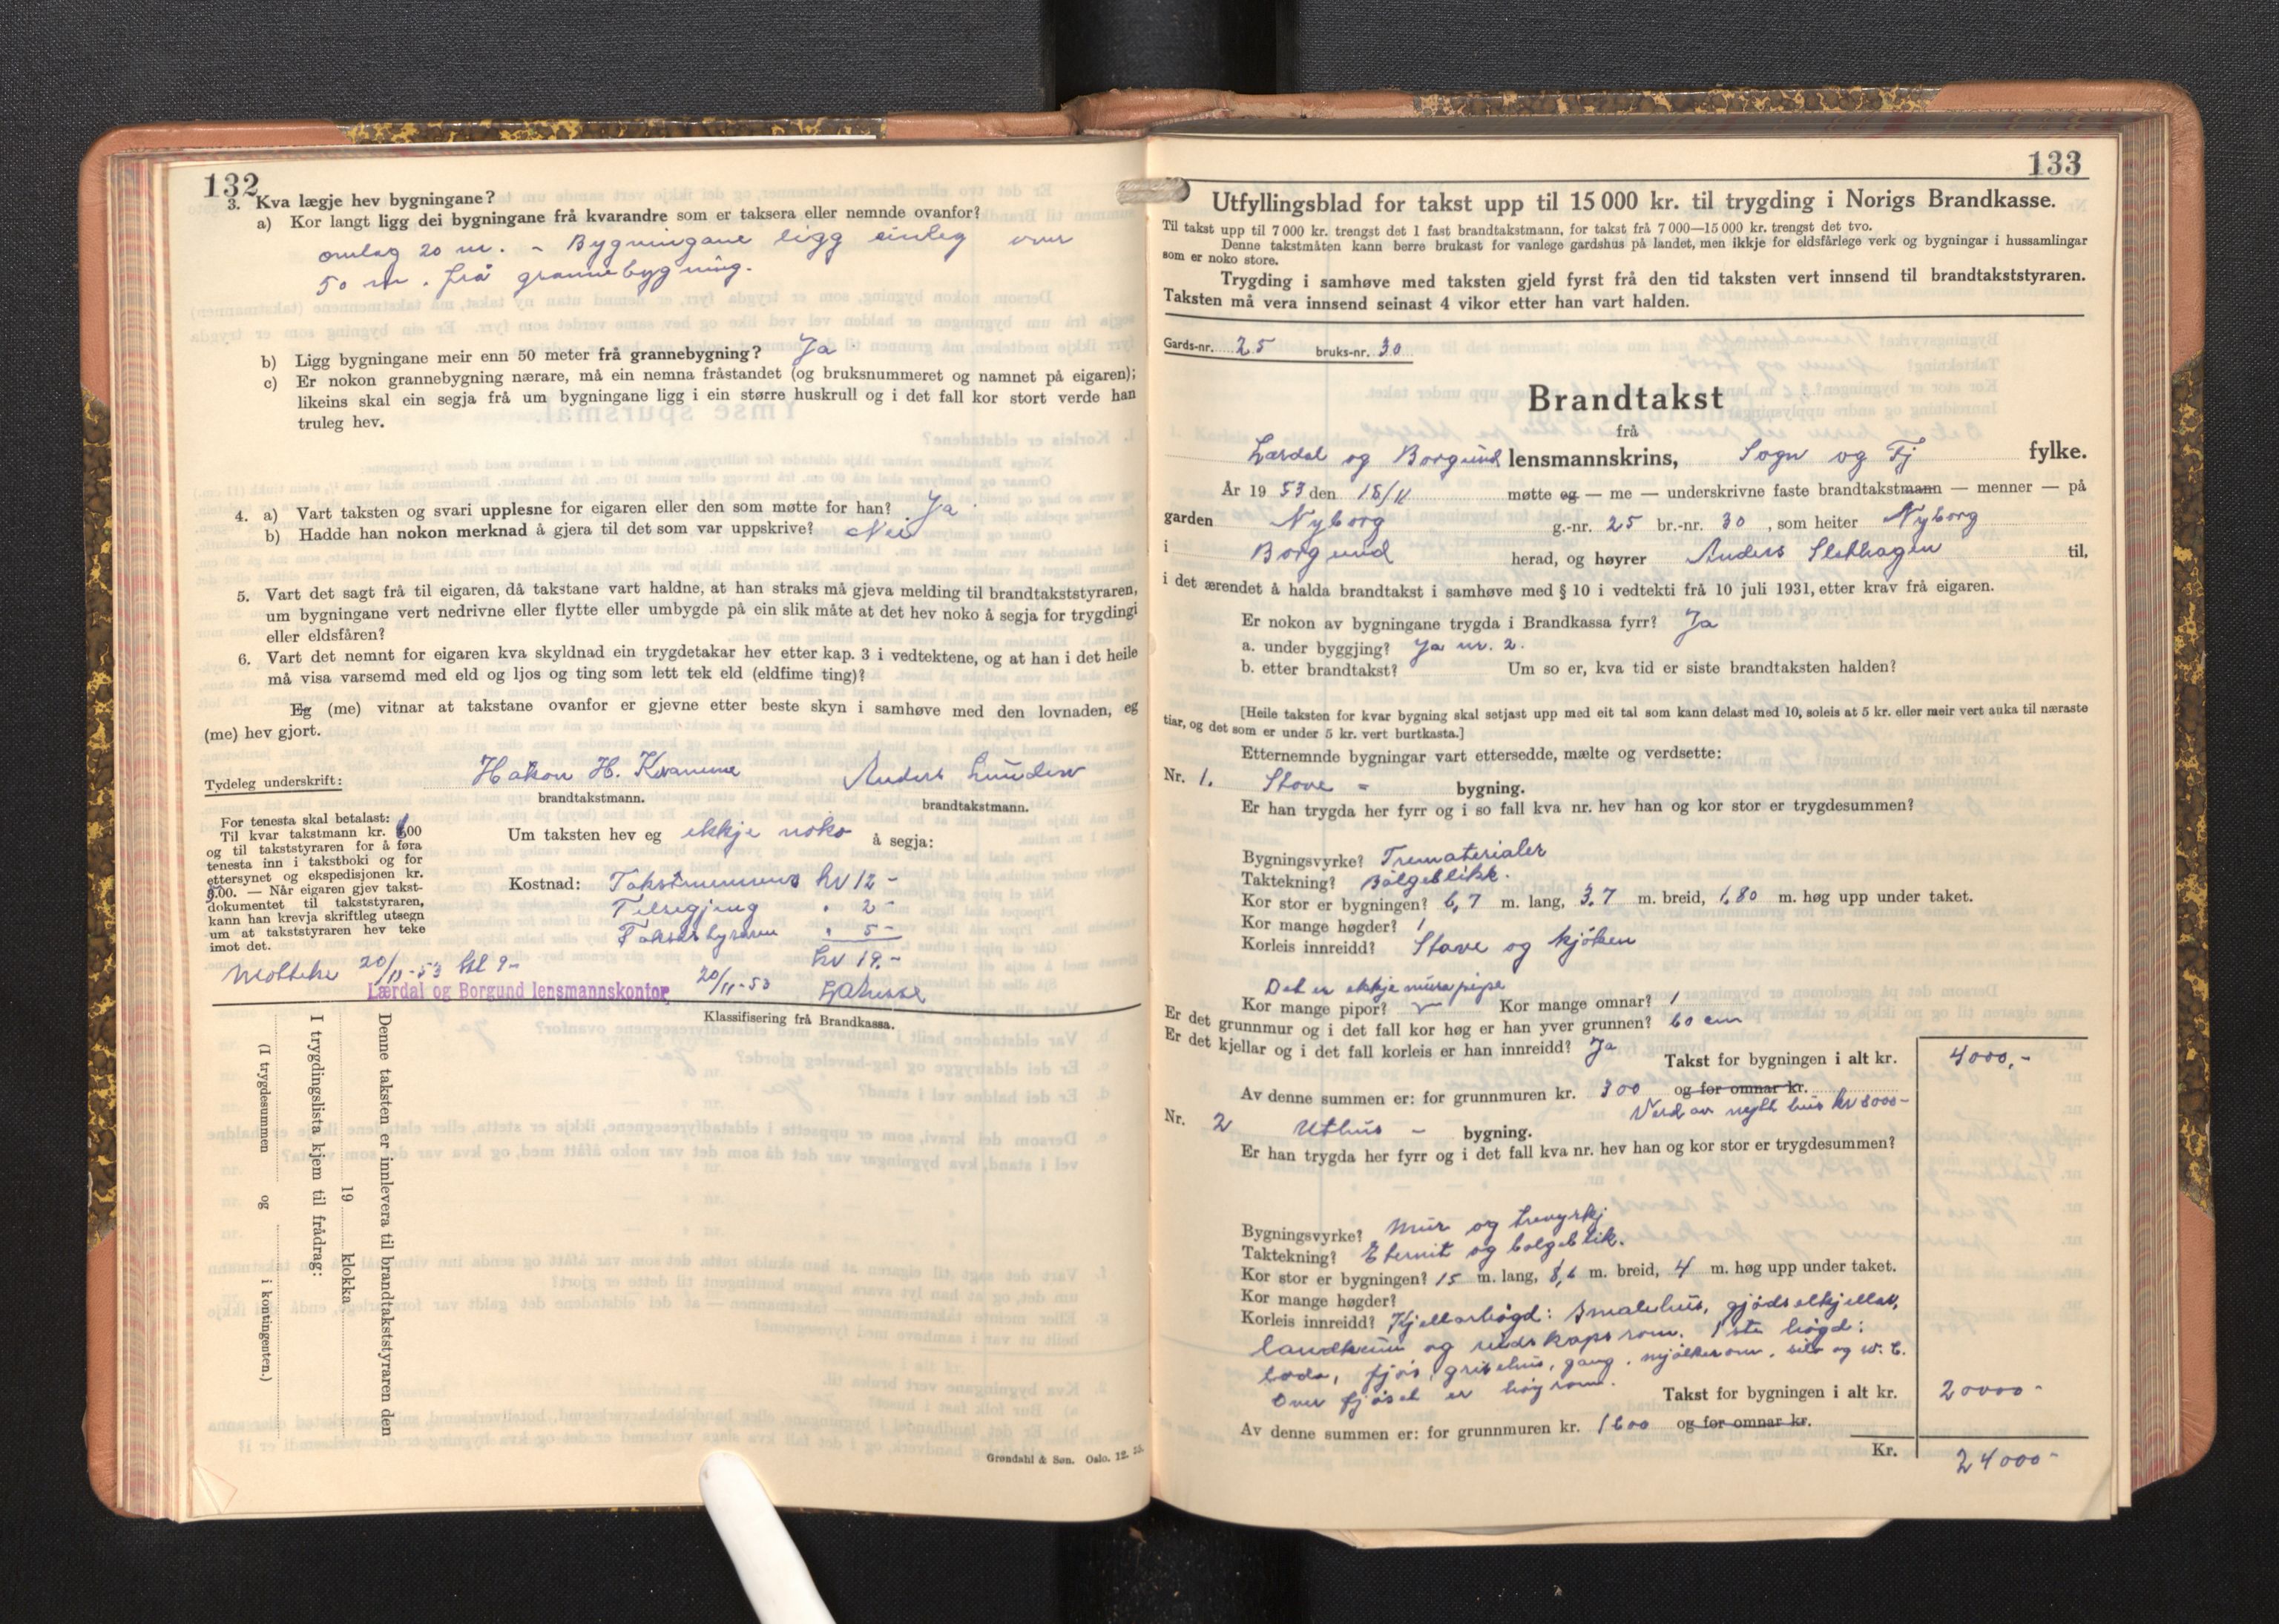 132
3. Kva lægje hev bygningane?
a) Kor langt ligg dei bygningane frå kvarandre som er taksera eller nemnde ovanfor?
omlag 20 m. - Bygningane ligg einleg over
50 m. frå grannebygning.
b) Ligg bygningane meir enn 50 meter frå grannebygning? Ja
c) Er nokon grannebygning nærare, må ein nemna fråstandet (og bruksnummeret og namnet på eigaren);
likeins skal ein segja frå um bygningane ligg i ein større huskrull og i det fall kor stort verde han
truleg hev.
4. a) Vart taksten og svari upplesne for eigaren eller den som møtte for han? Ja
b) Hadde han nokon merknad å gjera til det som var uppskrive? Nei
5. Vart det sagt frå til eigaren, då takstane vart haldne, at han straks må gjeva melding til brandtakststyraren,
um bygningane vert nedrivne eller flytte eller umbygde på ein slik måte at det hev noko å segja for trygdingi
eller eldsfåren?
6. Vart det nemnt for eigaren kva skyldnad ein trygdetakar hev etter kap. 3 i vedtektene, og at han i det heile
må visa varsemd med eld og ljos og ting som lett tek eld (eldfime ting)?
Eg (me) vitnar at takstane ovanfor er gjevne etter beste skyn i samhøve med den lovnaden, eg
(me) hev gjort.
Tydeleg underskrift: Håkon H. Kvamme Anders
brandtakstmann. brandtakstmann.
For tenesta skal betalast:
Til kvar takstmann kr. 6.00
og til takststyraren for å føra
tenesta inn i takstboki og for
ettersynet og ekspedisjonen kr.
5.00. — Når eigaren gjev takst-
dokumentet til takststyraren,
kann han krevja skriftleg utsegn
um at takststyraren hev teke
imot det.
Um taksten hev eg ikkje noko å segja:
Kostnad: Takstmennene kr 12 -
Tilsegjing " 2 -
Takststyraren " 5 -
kr 19.-
Motteke 20/11-53 kl 9-
Lærdal og Borgund lensmannskontor 20/11-53
Klassifisering frå Brandkassa.
Denne taksten er innlevera til brandtakststyraren den
19 klokka
I trygdingslista kjem til frådrag:
(I trygdesummen og i kontingenten.)
Grøndahl & Søn. Oslo. 12. 35.
133
Utfyllingsblad for takst upp til 15 000 kr. til trygding i Norigs Brandkasse.
Til takst upp til 7 000 kr. trengst det 1 fast brandtakstmann, for takst frå 7 000—15 000 kr. trengst det tvo.
Denne takstmåten kann berre brukast for vanlege gardshus på landet, men ikkje for eldsfårlege verk og bygningar i hussamlingar
som er noko store.
Trygding i samhøve med taksten gjeld fyrst frå den tid taksten vert innsend til brandtakststyraren.
Taksten må vera innsend seinast 4 vikor etter han vart halden.
Gards-nr. 25 bruks-nr. 30
Brandtakst
frå
Lærdal og Borgund lensmannskrins, Sogn og Fj fylke.
År 1953 den 18/11 møtte eg — me — underskrivne faste brandtakstmann — menner — på
garden Nyborg g.-nr. 25 br.-nr. 30, som heiter Nyborg
i Borgund herad, og høyrer Anders Sletthagen til,
i det ærendet å halda brandtakst i samhøve med § 10 i vedtekti frå 10 juli 1931, etter krav frå eigaren.
Er nokon av bygningane trygda i Brandkassa fyrr? Ja
a. under byggjing? Ja nr. 2.
b. etter brandtakst? Um so er, kva tid er siste brandtaksten halden?
[Heile taksten for kvar bygning skal setjast upp med eit tal som kann delast med 10, soleis at 5 kr. eller meir vert auka til næraste
tiar, og det som er under 5 kr. vert burtkasta.]
Etternemnde bygningar vart ettersedde, mælte og verdsette:
Nr. 1. Stove - bygning.
Er han trygda her fyrr og i so fall kva nr. hev han og kor stor er trygdesummen?
Bygningsvyrke? Trematerialer
Taktekning? Bølgeblikk.
Kor stor er bygningen? 6,7 m. lang, 3,7 m. breid, 1,80 m. høg upp under taket.
Kor mange høgder? 1
Korleis innreidd? Stove og kjøken
Det er ikkje mura pipe
Kor mange pipor? Kor mange omnar? 1
Er det grunnmur og i det fall kor høg er han yver grunnen? 60 cm
Er det kjellar og i det fall korleis er han innreidd? Ja
Takst for bygningen i alt kr. 4000,-
Av denne summen er: for grunnmuren kr. 300 og for omnar kr.
Verd av nytt hus kr 8000-
Nr. 2 Uthus - bygning.
Er han trygda her fyrr og i det fall kva nr. hev han og kor stor er trygdesummen?
Bygningsvyrke? Mur og trevyrkj
Taktekning? Eternit og bølgeblik.
Kor stor er bygningen? 15 m. lang, 8,6 m. breid, 4 m. høg upp under taket.
Kor mange høgder?
Korleis innreidd? Kjellarhøgd: Smalehus, gjødselkjellar,
landkum og reidskapsrom. 1ste høgd:
løda, fjøs, grisehus, gang, mjølkerom, silo og W.C.
Over fjøset er høyrom.
Takst for bygningen i alt kr. 20000-
Av denne summen er: for grunnmuren kr. 1600 og for omnar kr.
Kr. 24000-